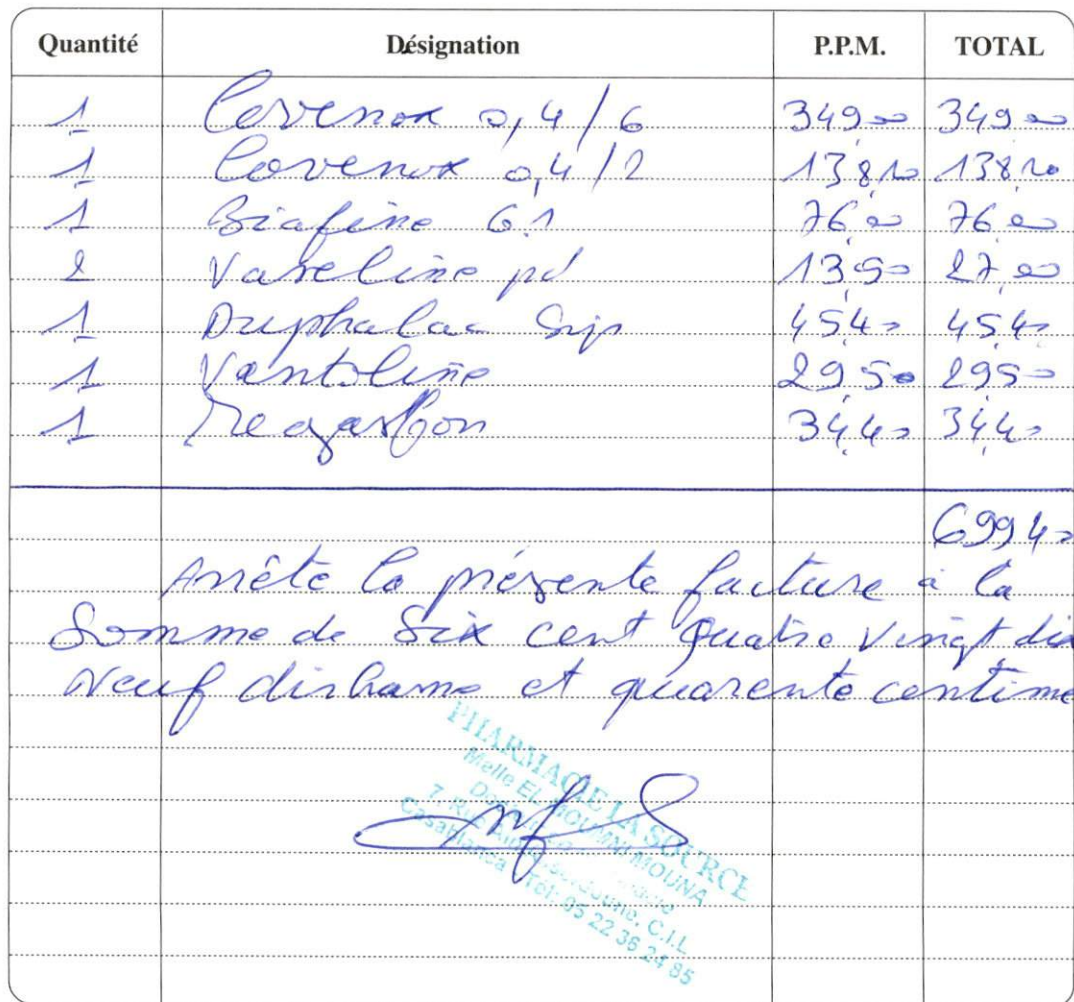 Quantité Désignation P.P.M. TOTAL
1 Lovenox 0,4/6 349,00 349,00
1 Lovenox 0,4/2 138,10 138,10
1 Biafine G.1 76,00 76,00
2 Vaseline pd 13,50 27,00
1 Duphalac Sip 45,40 45,40
1 Ventoline 29,50 29,50
1 34,40 34,40
699,40
Arrête la présente facture à la
Somme de Six cent quatre vingt dix
Neuf dirhams et quarente centime
PHARMACIE LA SOURCE
Melle EL MOUMNI MOUNA
7, Rue C.I.L
Casablanca Tél: 05 22 36 24 85